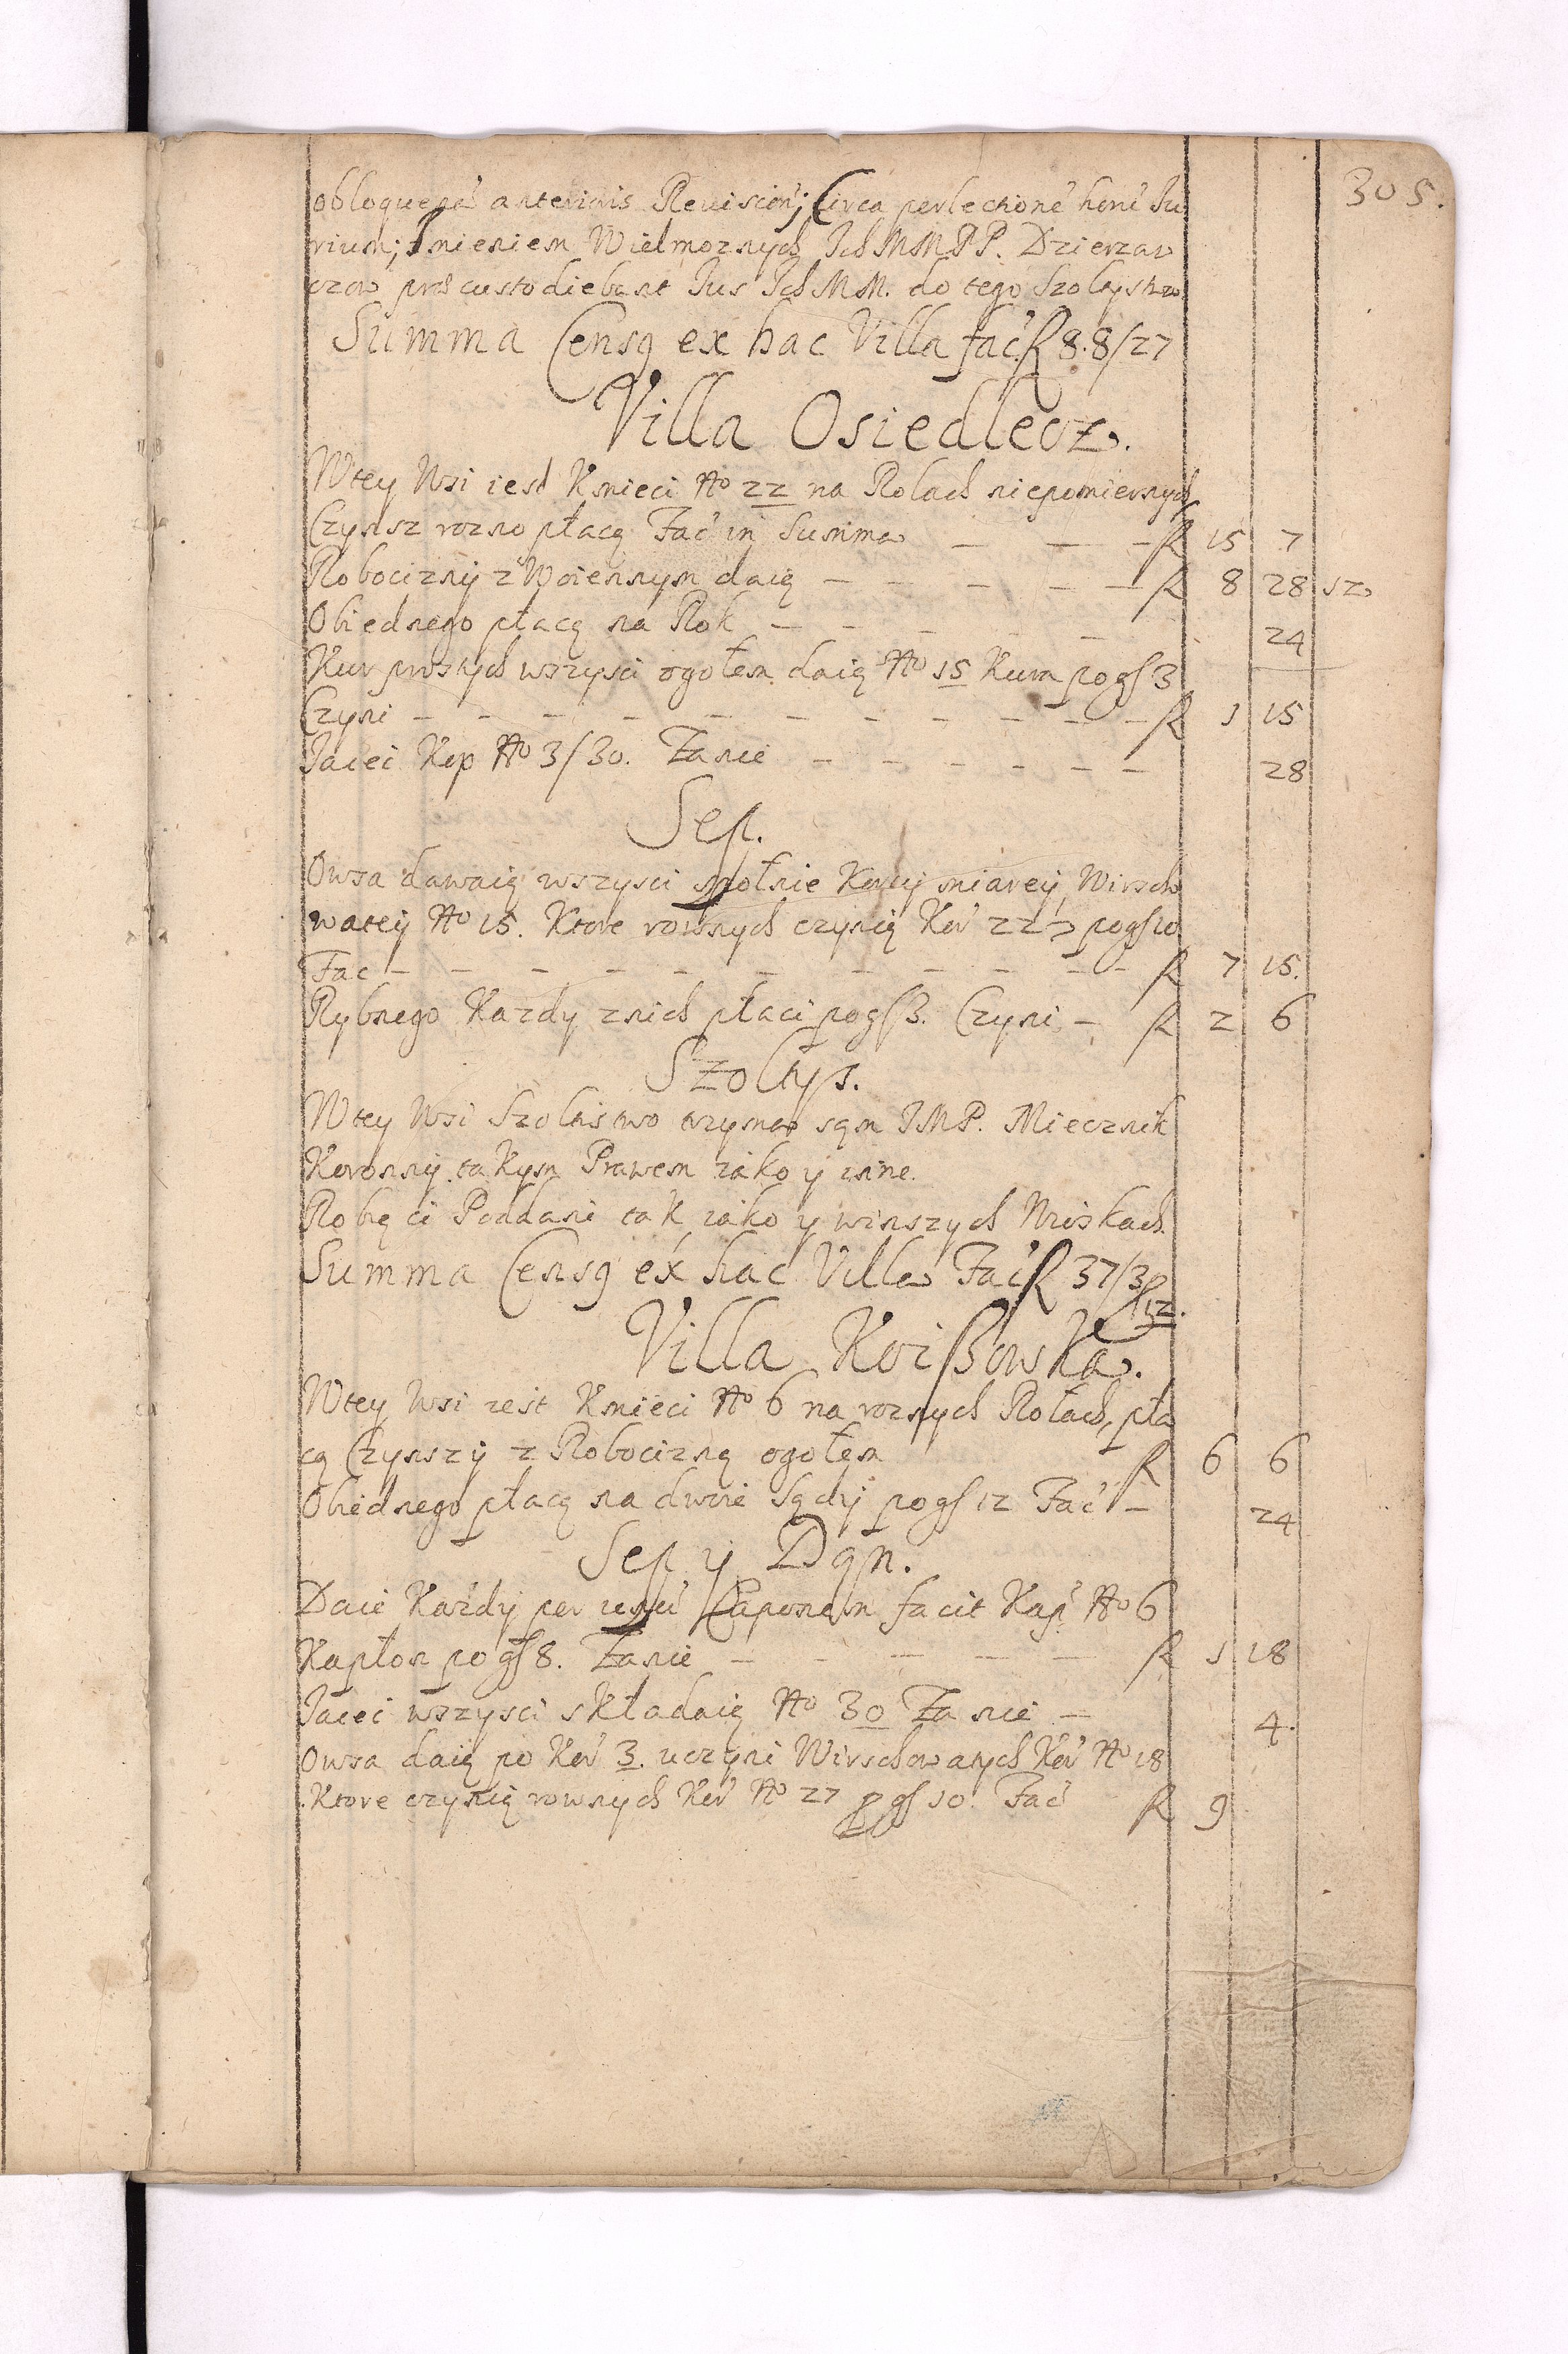 305.
obloquente anterioris Revisione; Circa perlectione hone Iu
rium; Imieniem Wielmoznych Ich MM PP. Dzierzaw
czow praecustodiebant Ius Ich MM. do tego Szoltystwa
Summa Censq ex hac Villa fac fl 88/27
Villa Osiedlecz.
Wtey Wsi iest Kmieci No 22 na Rolach niepomiernych
Czynsz rozno płacą Fac in Summa — — — fl 15 7
Robocizny z Woiennym daią — — — — — fl 8 28 12
Obiednego płacą na Rok — — — — — 24
Kur prostych wszysci ogołem daią No 15 Kura po gſ 3
Czyni — — — — — — — — — — fl 1 15
Iaiec Kop No 3/30. Zanie — — — — — 28
Sep.
Owsa dawaią wszysci społnie Korcy miarey Wirzcho
watey No 15. Ktore rownych czynią Kor 22½ po gſ 10
Fac — — — — — — — — — — fl 7 15.
Rybnego Kazdy znich płaci po gſ 3. Czyni — fl 2 6
Szoltys.
Wtey Wsi Szoltistwo trzyma sąm IMP. Miecznik
Koronny takym Prawem iako y inne.
Robią ci Poddani tak iako y winszych Wioskach.
Summa Censq ex hac Villa Fac fl 37/3
/12.
Villa Koiſzowka.
Wtey Wsi iest Kmieci No 6 na roznych Rolach, pła
cą Czynszy z Robocizną ogołem fl 6 6
Obiednego płacą na dwoie Sądy po gſ 12 Fac — 24
Sep y Dąn.
Daie Każdy per unu Caponem facit Kap No 6
Kapłon po gſ 8. Zanie — — — — — fl 1 18
Iaiec wszysci składaią No 30 Zanie — 4.
Owsa daią po Kor 3. uczyni Wirschowatych Kor No 18
Ktore czynią rownych Kor No 27 p gſ 10. Fac fl 9